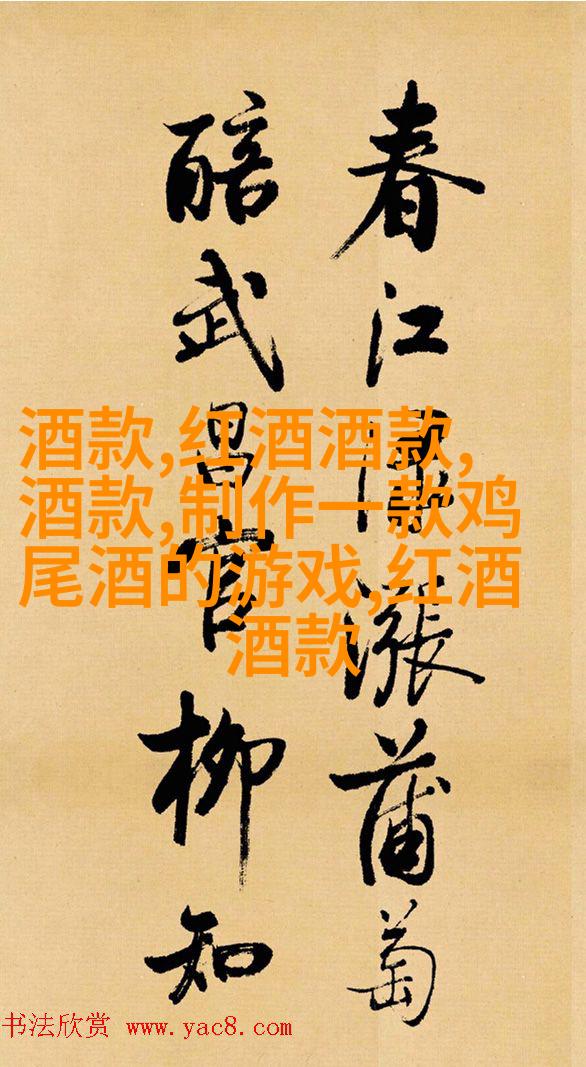 春江涨蒲萄
醅武昌官柳知
酒款,红酒酒款,
酒款,制作一款鸡
尾酒的游戏,红酒
酒款
书法欣赏 www.yac8.com